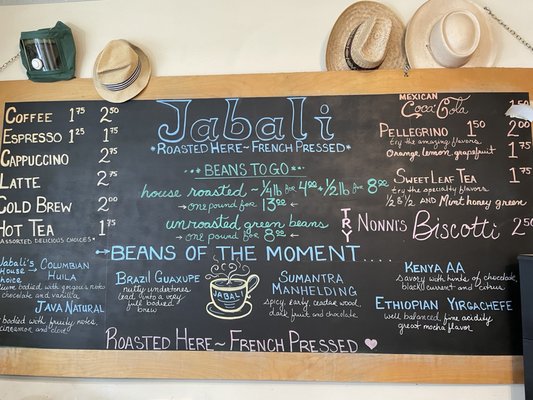 Coffee 1 75 2 50
Espresso 1 25 1 75
Cappuccino 2 75
Latte 2 75
Cold Brew 2 00
Hot Tea 1 75
Assorted Delicious Choices
Jabali
*Roasted Here~French Pressed*
Beans To Go
house roasted - 1/4 lb for 4 00 + 1/2 lb for 8 00
→ one pound for 13 00 ←
unroasted green beans
→ one pound for 8 00 ←
Mexican
Coca Cola
Pellegrino 1 50 2 00
try the amazing flavors
Orange, lemon, grapefruit 1 75
Sweet Leaf Tea 1 75
try the specialty flavors
1/2 & 1/2 and Mint honey green
TRY Nonni's Biscotti 2 50
Beans of the Moment....
Jabali's House Choice → Columbian Huila
bodied with
chocolate and vanilla
Java Natural
bodied with fruity notes,
cinnamon and clove
Brazil Guaxupe
nutty undertones
lead into a very
full bodied
brew
Jabali
Sumantra
Manhelding
spicy, earthy, cedar wood,
dark fruit and chocolate
Kenya AA
savory with hints of chocolate,
black currant and citrus
Ethiopian Yirgachefe
well balanced fine acidity
great mocha flavor
Roasted Here~French Pressed